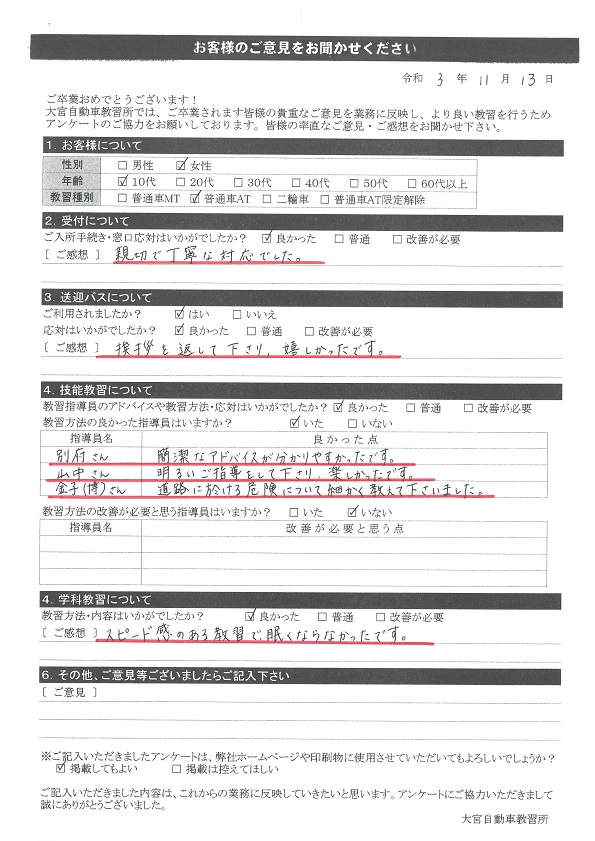 お客様のご意見をお聞かせください
令和 3 年 11 月 13 日
ご卒業おめでとうございます!
大宮自動車教習所では、ご卒業されます皆様の貴重なご意見を業務に反映し、より良い教習を行うため
アンケートのご協力をお願いしております。皆様の率直なご意見・ご感想をお聞かせ下さい。
1. お客様について
性別 □ 男性 ☑ 女性
年齢 ☑ 10代 □ 20代 □ 30代 □ 40代 □ 50代 □ 60代以上
教習種別 □ 普通車MT ☑ 普通車AT □ 二輪車 □ 普通車AT限定解除
2. 受付について
ご入所手続き・窓口応対はいかがでしたか? ☑ 良かった □ 普通 □ 改善が必要
[ ご感想 ] 親切で丁寧な対応でした。
3. 送迎バスについて
ご利用されましたか? ☑ はい □ いいえ
応対はいかがでしたか? ☑ 良かった □ 普通 □ 改善が必要
[ ご感想 ] 挨拶を返して下さり、嬉しかったです。
4. 技能教習について
教習指導員のアドバイスや教習方法・応対はいかがでしたか? ☑ 良かった □ 普通 □ 改善が必要
教習方法の良かった指導員はいますか? ☑ いた □ いない
指導員名 良かった点
別府さん 簡潔なアドバイスが分かりやすかったです。
山中さん 明るいご指導をして下さり、楽しかったです。
金子(博)さん 道路に於ける危険について細かく教えて下さいました。
教習方法の改善が必要と思う指導員はいますか? □ いた ☑ いない
指導員名 改善が必要と思う点
4. 学科教習について
教習方法・内容はいかがでしたか? ☑ 良かった □ 普通 □ 改善が必要
[ ご感想 ] スピード感のある教習で眠くならなかったです。
6. その他、ご意見等ございましたらご記入下さい
[ ご意見 ]
※ご記入いただきましたアンケートは、弊社ホームページや印刷物に使用させていただいてもよろしいでしょうか?
☑ 掲載してもよい □ 掲載は控えてほしい
ご記入いただきました内容は、これからの業務に反映していきたいと思います。アンケートにご協力いただきまして
誠にありがとうございました。
大宮自動車教習所